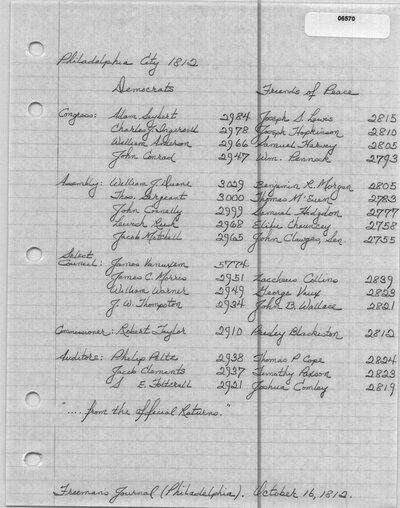 06570
Philadelphia City 1812
Democrats Friends of Peace
Congress: Adam Seybert 2984 Joseph S. Lewis 2815
Charles J. Ingersoll 2978 Joseph Hopkinson 2810
William Anderson 2966 Samuel Harvey 2805
John Conrad 2947 Wm. Pennock 2793
Assembly: William J. Duane 3029 Benjamin R. Morgan 2805
Thos. Sergeant 3000 Thomas M'Euen 2783
John Connelly 2999 Samuel Hodgdon 2777
Lewis Rush 2968 Elihu Chauncey 2758
Jacob Mitchell 2965 John Clawges, Sen. 2755
Select
Council: James Vanuxem 5774
James C. Morris 2951 Zaccheus Collins 2839
William Warner 2949 George Vaux 2823
J. W. Thompson 2934 John B. Wallace 2821
Commissioner: Robert Taylor 2910 Blackiston 2812
Auditors: Philip 2938 Thomas P. Cope 2824
Jacob Clements 2937 Timothy Paxson 2823
S E. 2921 Joshua Comly 2819
".... from the official Returns."
Freeman's Journal (Philadelphia). October 16, 1812.